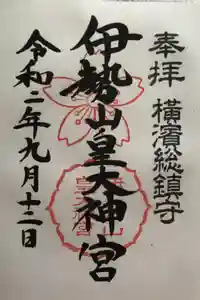 奉拝 横濱総鎮守
伊勢山皇大神宮
令和二年九月十二日